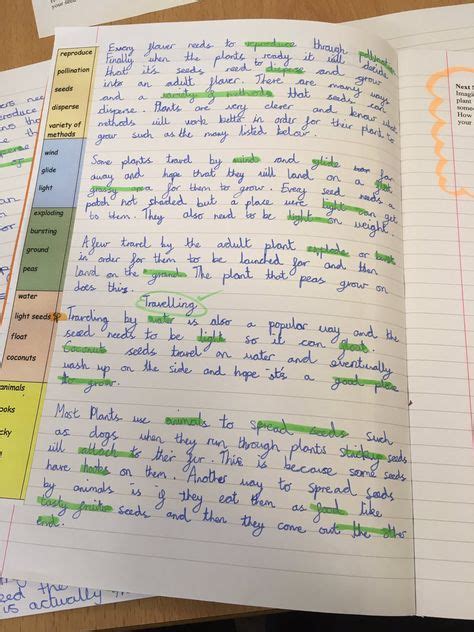 reproduce
pollination
seeds
disperse
variety of
methods
wind
glide
light
exploding
bursting
ground
peas
water
light seeds
float
coconuts
animals
ooks
cky
Every flower needs to reproduce through pollination
Finally when the plants ready it will decide
that it's seeds need to disperse and grow
into an adult flower. There are many ways
and a variety of methods that seeds can
disperse. Plants are very clever and know what
methods will work better in order for their plants to
grow such as the many listed below.
Some plants travel by wind and glide far
away and hope that they will land on a flat
grassy area for them to grow. Every seed needs a
patch not shaded but a place were light can get
to them. They also need to be light on weight.
A few travel by the adult plant explode or burst
in order for them to be launched far and then
land on the ground. The plant that peas grow on
does this.
Travelling
Traveling by water is also a popular way and the
seed needs to be light so it can float
Coconuts seeds travel on water and eventually
wash up on the side and hope it's a good place
to grow.
Most Plants use animals to spread seeds such
as dogs when they run through plants sticky seeds
will attach to their fur. This is because some seeds
have hooks on them. Another way to spread seeds
by animals is if they eat them as food like
tasty fruite seeds and then they come out the other
end.
Next S
Imagi
plant
some
How
your
your seed
eed the
is actually